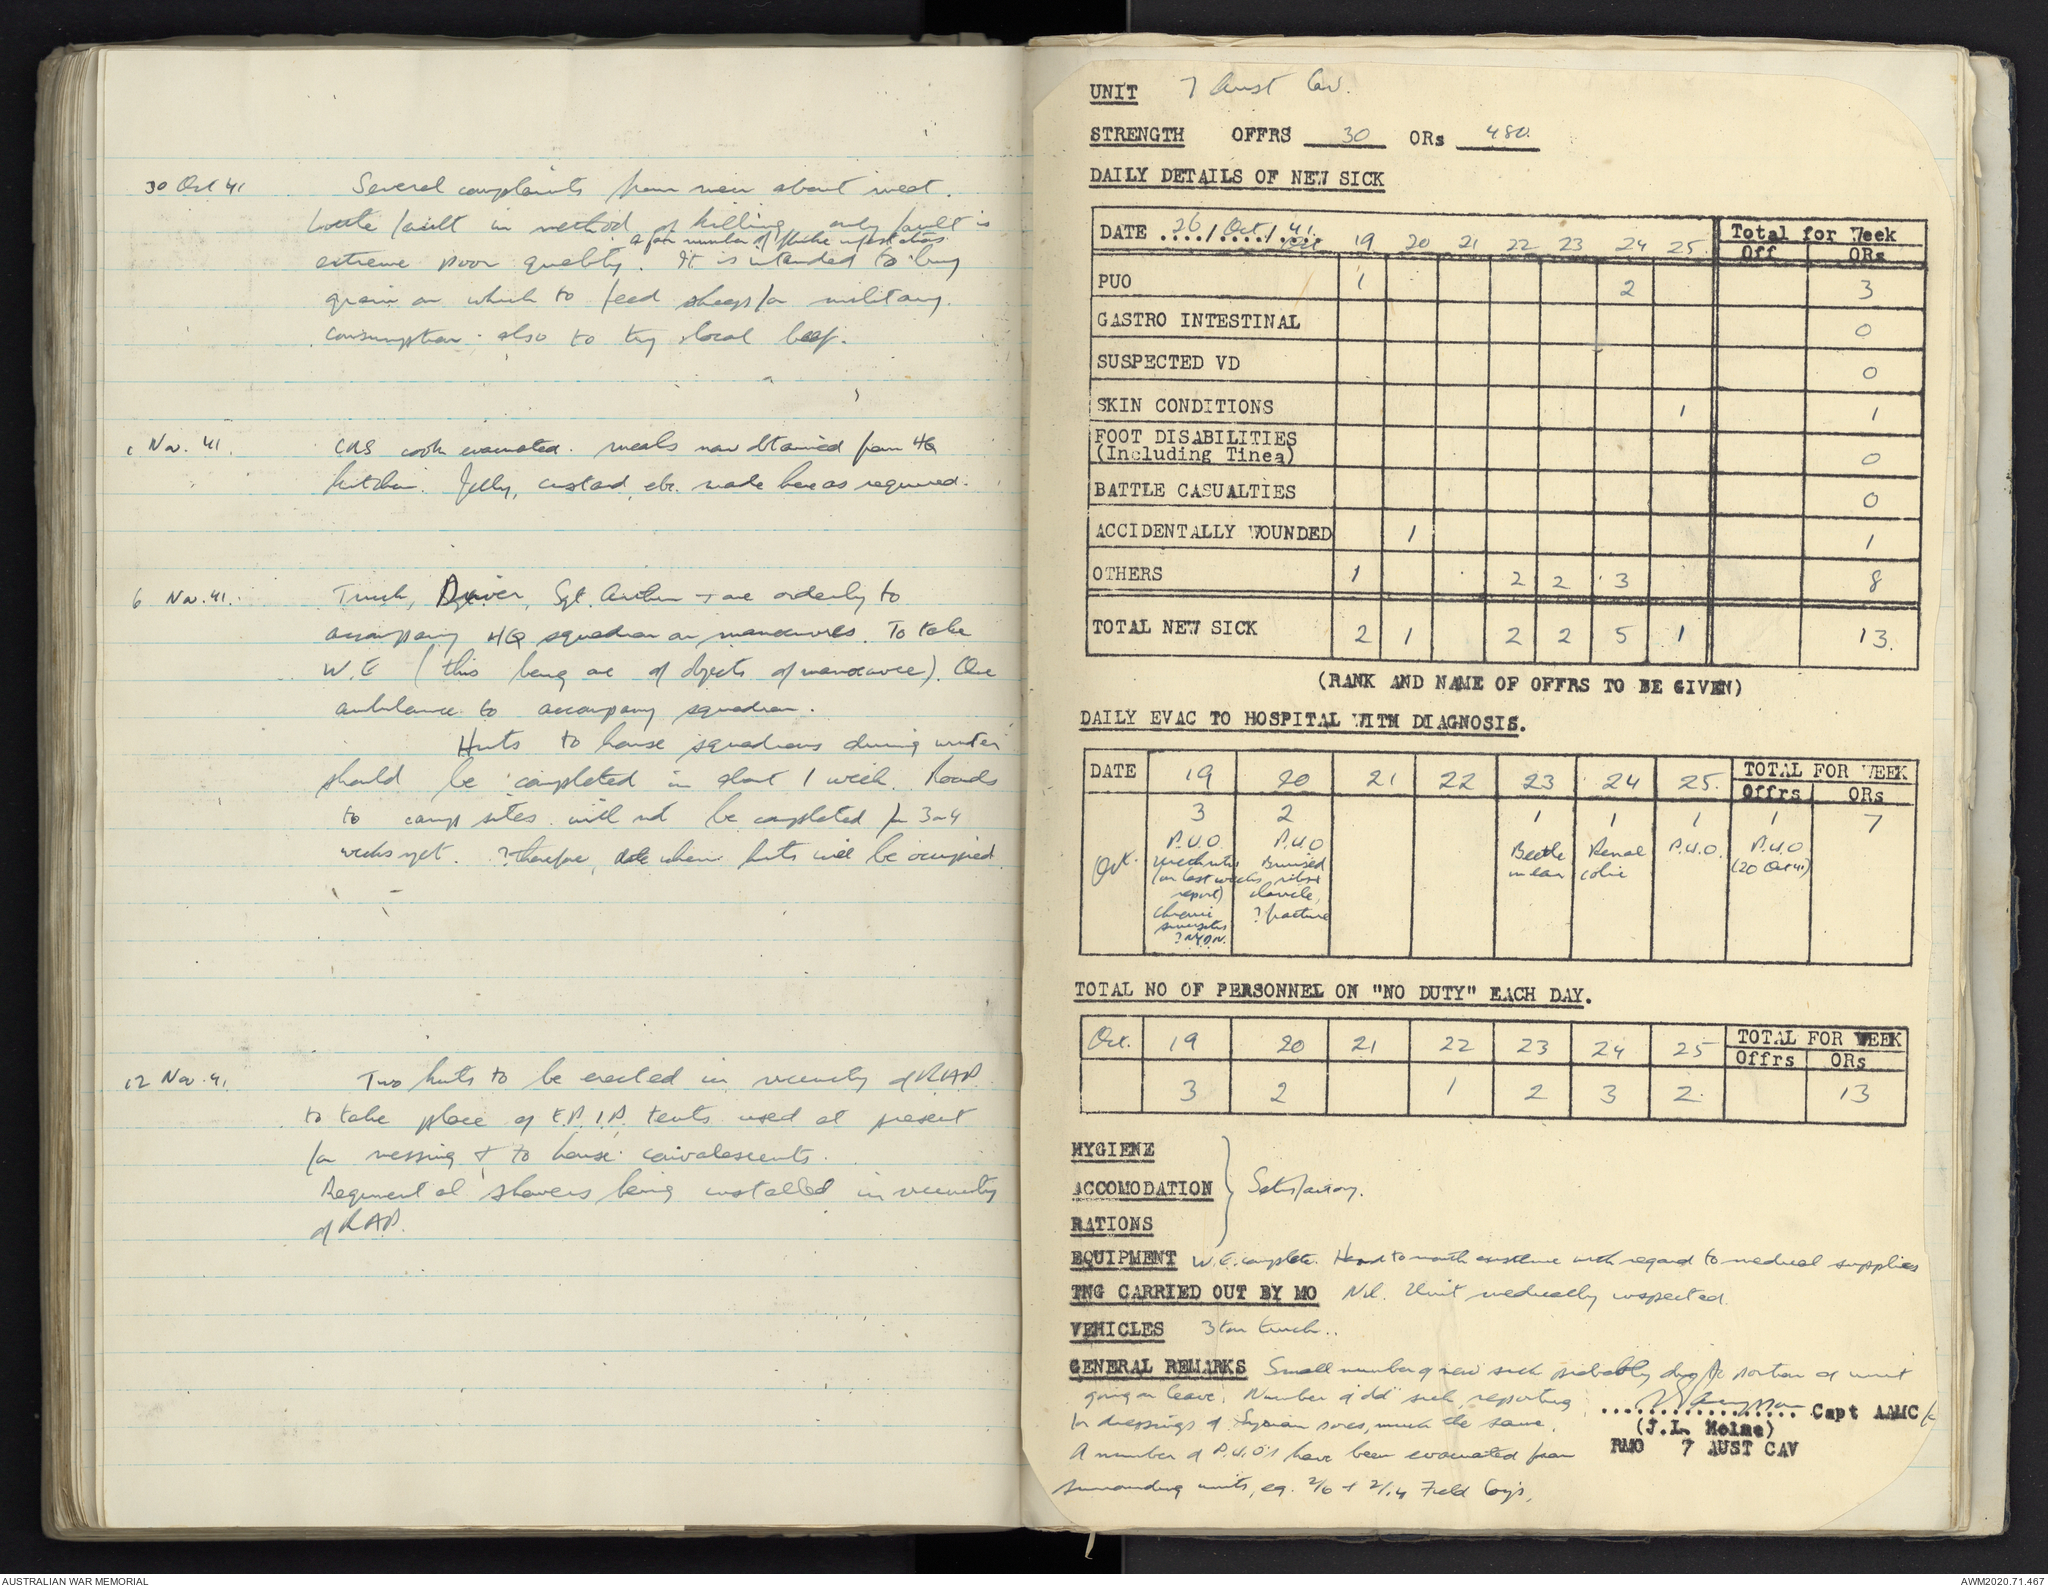 30 Oct 41 Several complaints from men about meat.
Little fault in method of killing, only fault is
a fair number of fluke infestations
extreme poor quality. It is intended to buy
grain on which to feed sheep for military
consumption also to try local beef.
1 Nov. 41. CRS cook evacuated. Meals now obtained from HQ
kitchen. Jelly, custard, etc. made here as required.
6 Nov. 41. Truck, Driver, Sgt. + one orderly to
accompany HQ squadron on manoeuvres. To take
W.E (this being one of objects of manoeuvre). One
ambulance to accompany squadron.
Huts to house squadrons during winter
should be completed in about 1 week. Roads
to camp sites will not be completed for 3 or 4
weeks yet. ? therefore, date when huts will be occupied.
12 Nov. 41 Two huts to be erected in vicinity of RAP
to take place of E.P.I.P. tents used at present
for messing & to house convalescents.
Regimental showers being installed in vicinity
of RAP.
UNIT 7 Aust Cav.
STRENGTH OFFRS 30 ORs 480.
DAILY DETAILS OF NEW SICK
DATE 26/Oct/41. Oct 19 20 21 22 23 24 25. Total for Week
Off ORs
PUO 1 2 3
GASTRO INTESTINAL 0
SUSPECTED VD 0
SKIN CONDITIONS 1 1
FOOT DISABILITIES
(Including Tinea) 0
BATTLE CASUALTIES 0
ACCIDENTALLY WOUNDED 1 1
OTHERS 1 2 2 3 8
TOTAL NEW SICK 2 1 2 2 5 1 13.
(RANK AND NAME OF OFFRS TO BE GIVEN)
DAILY EVAC TO HOSPITAL WITH DIAGNOSIS.
DATE 19 20 21 22 23 24 25. TOTAL FOR WEEK
Offrs ORs
3 2 1 1 1 1 7
Oct. P.U.O. P.U.O Beetle Renal P.U.O. P.U.O
Urethritis Bruised in ear colic (20 Oct 41)
(on last weeks ribs &
report) clavicle,
Chronic ? fracture
sinusitis
? NYDN.
TOTAL NO OF PERSONNEL ON "NO DUTY" EACH DAY.
Oct. 19 20 21 22 23 24 25 TOTAL FOR WEEK
Offrs ORs
3 2 1 2 3 2 13
HYGIENE
ACCOMODATION Satisfactory.
RATIONS
EQUIPMENT W.E. complete. Hand to mouth existence with regard to medical supplies
TNG CARRIED OUT BY MO Nil. Unit medically inspected.
VEHICLES 3 ton truck..
GENERAL REMARKS Small number of new sick probably due to portion of unit
going on leave. Number of old sick, reporting
for dressings of Syrian sores, much the same.
A number of P.U.O's have been evacuated from
surrounding units, eg. 2/6 + 2/14 Field Coy's,
.................. Capt AAMC
(J.L. Holme)
RMO 7 AUST CAV
AUSTRALIAN WAR MEMORIAL
AWM2020.71.467